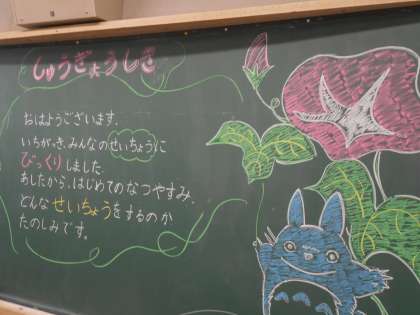 しゅうぎょうしき
おはようございます。
いちがっき、みんなのせいちょうに
びっくりしました。
あしたから、はじめてのなつやすみ。
どんなせいちょうをするのか
たのしみです。